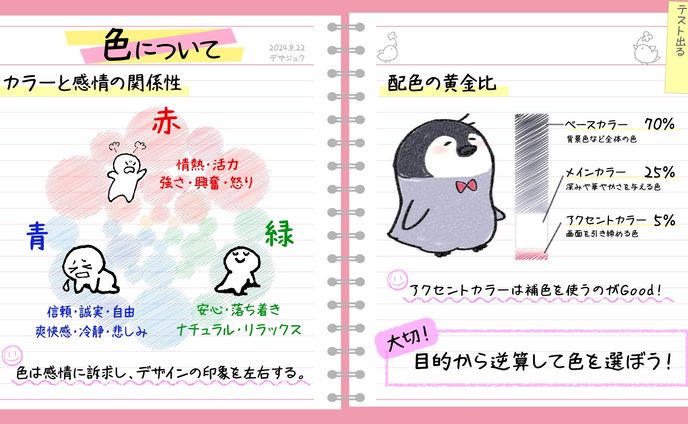 色について
2024.8.22
デザジュク
カラーと感情の関係性
赤
情熱・活力
強さ・興奮・怒り
青
緑
信頼・誠実・自由
爽快感・冷静・悲しみ
安心・落ち着き
ナチュラル・リラックス
色は感情に訴求し、デザインの印象を左右する。
テスト出る
配色の黄金比
ベースカラー 70%
背景色など全体の色
メインカラー 25%
深みや華やかさを与える色
アクセントカラー 5%
画面を引き締める色
アクセントカラーは補色を使うのがGood!
大切!
目的から逆算して色を選ぼう!